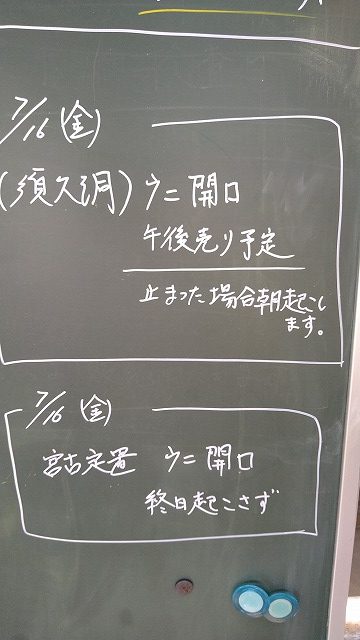 7/16(金)
(須久洞) ウニ開口
午後売り予定
止まった場合朝起こし
ます。
7/16(金)
宮古定置 ウニ開口
終日起こさず